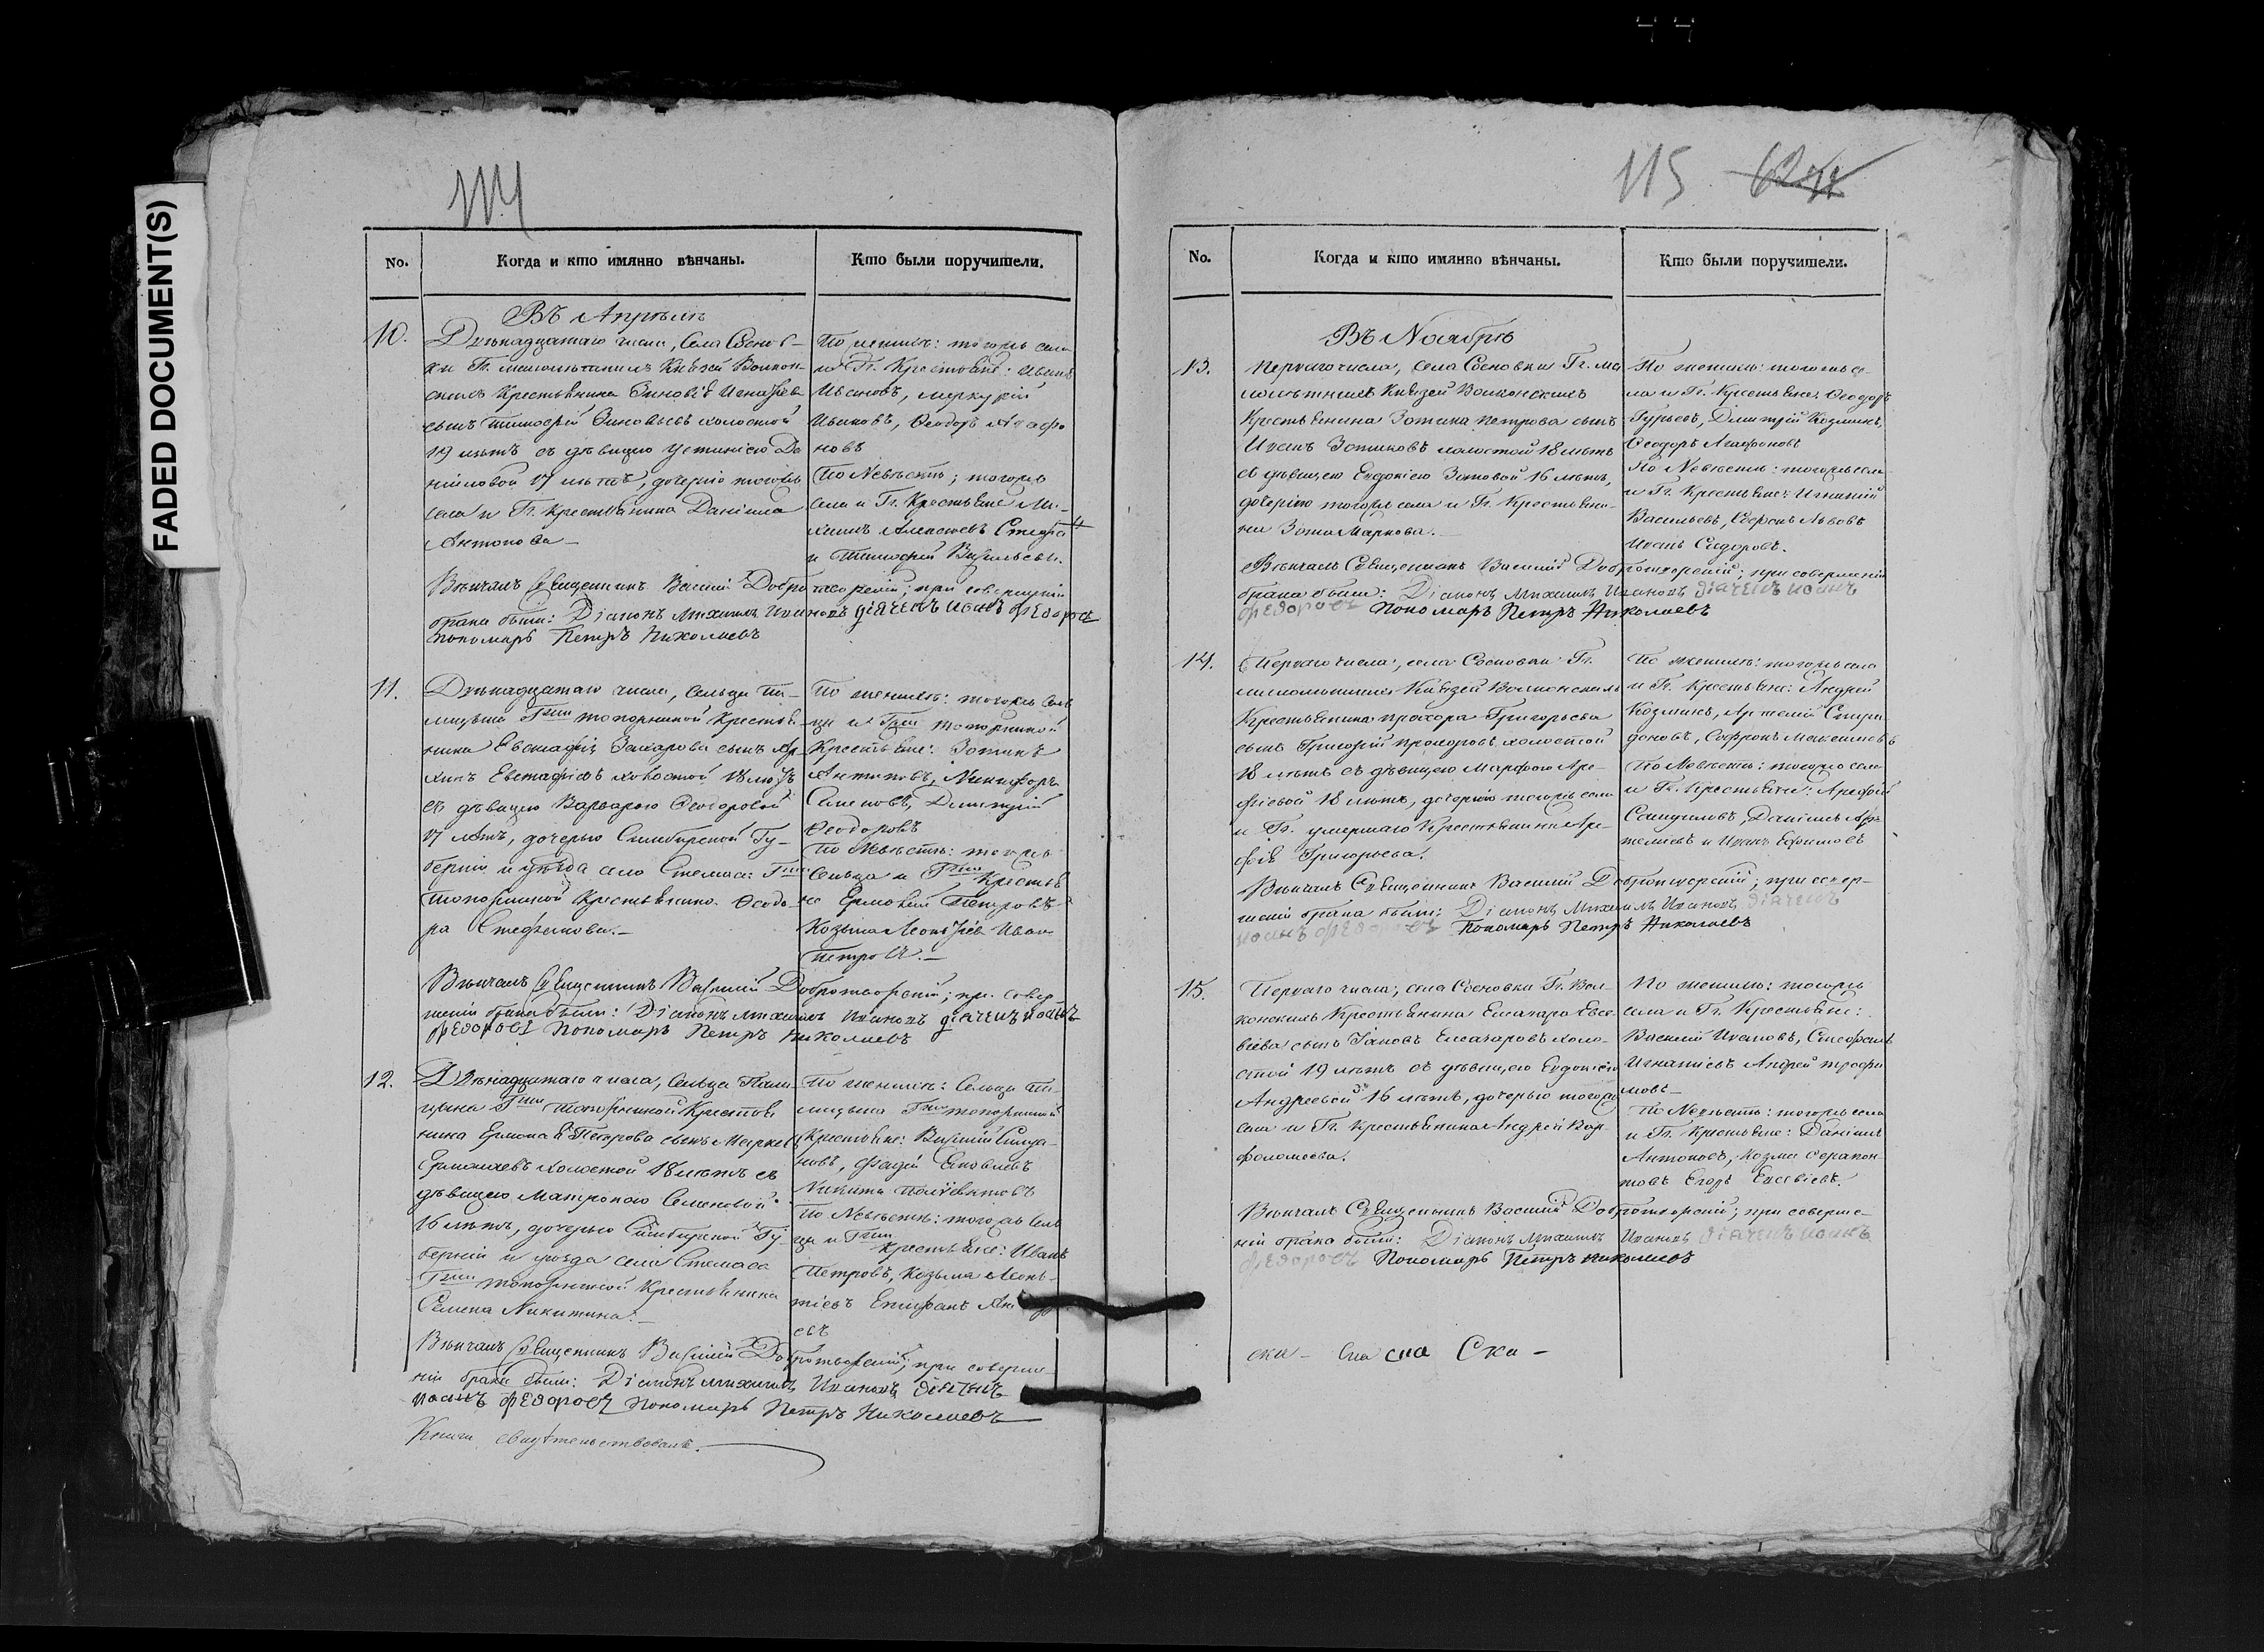 FADED DOCUMENT(S)
114
No.
Когда и кто имянно вѣнчаны.
Кто были поручители.
Въ Апрѣлѣ
10.
Двѣнадцатаго числа, села Соснов-
ки Гг. малолѣтнихъ Князей Волкон-
скихъ Крестьянина Зиновія Игнатьева
сынъ Тимофей Зиновьевъ холостой
19 лѣтъ съ дѣвицею Устиніею Да
ніиловой 17 лѣтъ, дочерію тогожъ
села и Гг. Крестьянина Даніила
Антонова
По женихѣ: тогожъ села
и Гг. Крестьяне: Иванъ
Ивановъ, Меркурій
Ивановъ, Ѳеодоръ Агафо
новъ
По Невѣстѣ; тогожъ
села и Гг. Крестьяне Ми-
хаилъ Алексѣевъ
и Тимофей Васильевы.
Вѣнчалъ Священникъ Василій Добротворскій; при совершеніи
брака были: Діаконъ Михаилъ Ивановъ діячекъ иванъ федоровъ
пономарь Петръ Николаевъ
11.
Двѣнадцатаго числа, Сельца
Гжи Топорниной Крестья-
нина Евстафія Захарова сынъ
Евстафіевъ холостой 18 лѣтъ
съ дѣвицею Варварою Ѳеодоровой
17 лѣтъ, дочерью Симбирской Гу-
берніи и уѣзда села Стемаса Гжи
Топорниной Крестьянина Ѳеодо-
ра Стефанова.
По женихѣ: тогожъ Сель
ца и Гжи Топорниной
Крестьяне: Зотикъ
Антиповъ, Никифоръ
Семеновъ, Димитрій
Ѳеодоровъ
По Невѣстѣ: тогожъ
Сельца и Гжи Крестья
не Ермолай Петровъ
Козьма Леонтіевъ Иванъ
Петровъ.
Вѣнчалъ Священникъ Василій Добротворскій; при совер-
шеніи брака были: Діаконъ Михаилъ Ивановъ діячекъ иоанъ
федоровъ Пономарь Петръ Николаевъ
12.
Двѣнадцатаго числа, Сельца
Гжи Топорниной Крестья
нина Ермолая Петрова сынъ
Ермолаевъ холостой 18 лѣтъ съ
дѣвицею Матроною Семеновой
16 лѣтъ, дочерью Симбирской Гу-
берніи и уѣзда села Стемаса
Гжи Топорниной Крестьянина
Семена Никитина.
По женихѣ: Сельца
Гжи Топорниной
Крестьяне: Василій
Яковлевъ
Никита
По Невѣстѣ: тогожъ Сель
ца и Гжи Крестьяне: Иванъ
Петровъ, Козьма Леонь-
тіевъ Епифанъ
евъ
Вѣнчалъ Священникъ Василій Добротворскій; при соверше
ніи брака были: Діаконъ Михаилъ Ивановъ діячекъ
иоанъ федоровъ пономарь Петръ Николаевъ
Книги свидѣтельствовалъ.
115
No.
Когда и кто имянно вѣнчаны.
Кто были поручители.
Въ Ноябрѣ
13.
Перваго числа, села Сосновки Гг. Ма
лолѣтнихъ Князей Волконскихъ
Крестьянина Зотика Петрова сынъ
Иванъ Зотиковъ холостой 18 лѣтъ
съ дѣвицею Евдокіею Зотовой 16 лѣтъ,
дочерію тогожъ села и Гг. Крестьяни-
на Зота Маркова.
По женихѣ: тогожъ се-
ла и Гг. Крестьяне: Ѳеодоръ
Гурьевъ, Дмитрій Козминъ,
Ѳеодоръ Агафоновъ
По Невѣстѣ: тогожъ села
и Гг. Крестьяне: Игнатій
Васильевъ, Львовъ
Иванъ Сидоровъ.
Вѣнчалъ Священникъ Василій Добротворскій; при совершеніи
брака были: Діаконъ Михаилъ Ивановъ діячекъ иоанъ
федоровъ Пономарь Петръ Николаевъ
14.
Перваго числа, села Сосновки Гг.
малолѣтнихъ Князей Волконскихъ
Крестьянина Прохора Григорьева
сынъ Григорій Прохоровъ холостой
18 лѣтъ съ дѣвицею Марфою Аре-
фіевой 18 лѣтъ, дочерію тогожъ села
и Гг. умершаго Крестьянина Аре-
фія Григорьева.
По женихѣ: тогожъ села
и Гг. Крестьяне: Андрей
Козминъ, Артемій Спири-
доновъ, Софронъ Максимовъ
По Невѣстѣ: тогожъ села
и Гг. Крестьяне: Арефій
Самуиловъ, Даніилъ Ар-
темьевъ и Иванъ Ефимовъ
Вѣнчалъ Священникъ Василій Добротворскій; при совер-
шеніи брака были: Діаконъ Михаилъ Ивановъ діячекъ
иоанъ федоровъ Пономарь Петръ Николаевъ
15.
Перваго числа, села Сосновки Гг. Вол-
конскихъ Крестьянина Елеазара Евсе-
віева сынъ Іаковъ Елеазаровъ холо-
стой 19 лѣтъ съ дѣвицею Евдокіею
Андреевой 16 лѣтъ, дочерью тогожъ
села и Гг. Крестьянина Андрея Вар-
фоломеева.
По женихѣ: тогожъ
села и Гг. Крестьяне:
Василій Ивановъ, Стефанъ
Игнатіевъ Андрей Трофи
мовъ
По Невѣстѣ: тогожъ села
и Гг. Крестьяне: Даніилъ
Антоновъ, Козма Ферапон-
товъ Егоръ Евсевіевъ.
Вѣнчалъ Священникъ Василій Добротворскій; при соверше-
ніи брака были: Діаконъ Михаилъ Ивановъ діячекъ иоанъ
федоровъ Пономарь Петръ Николаевъ